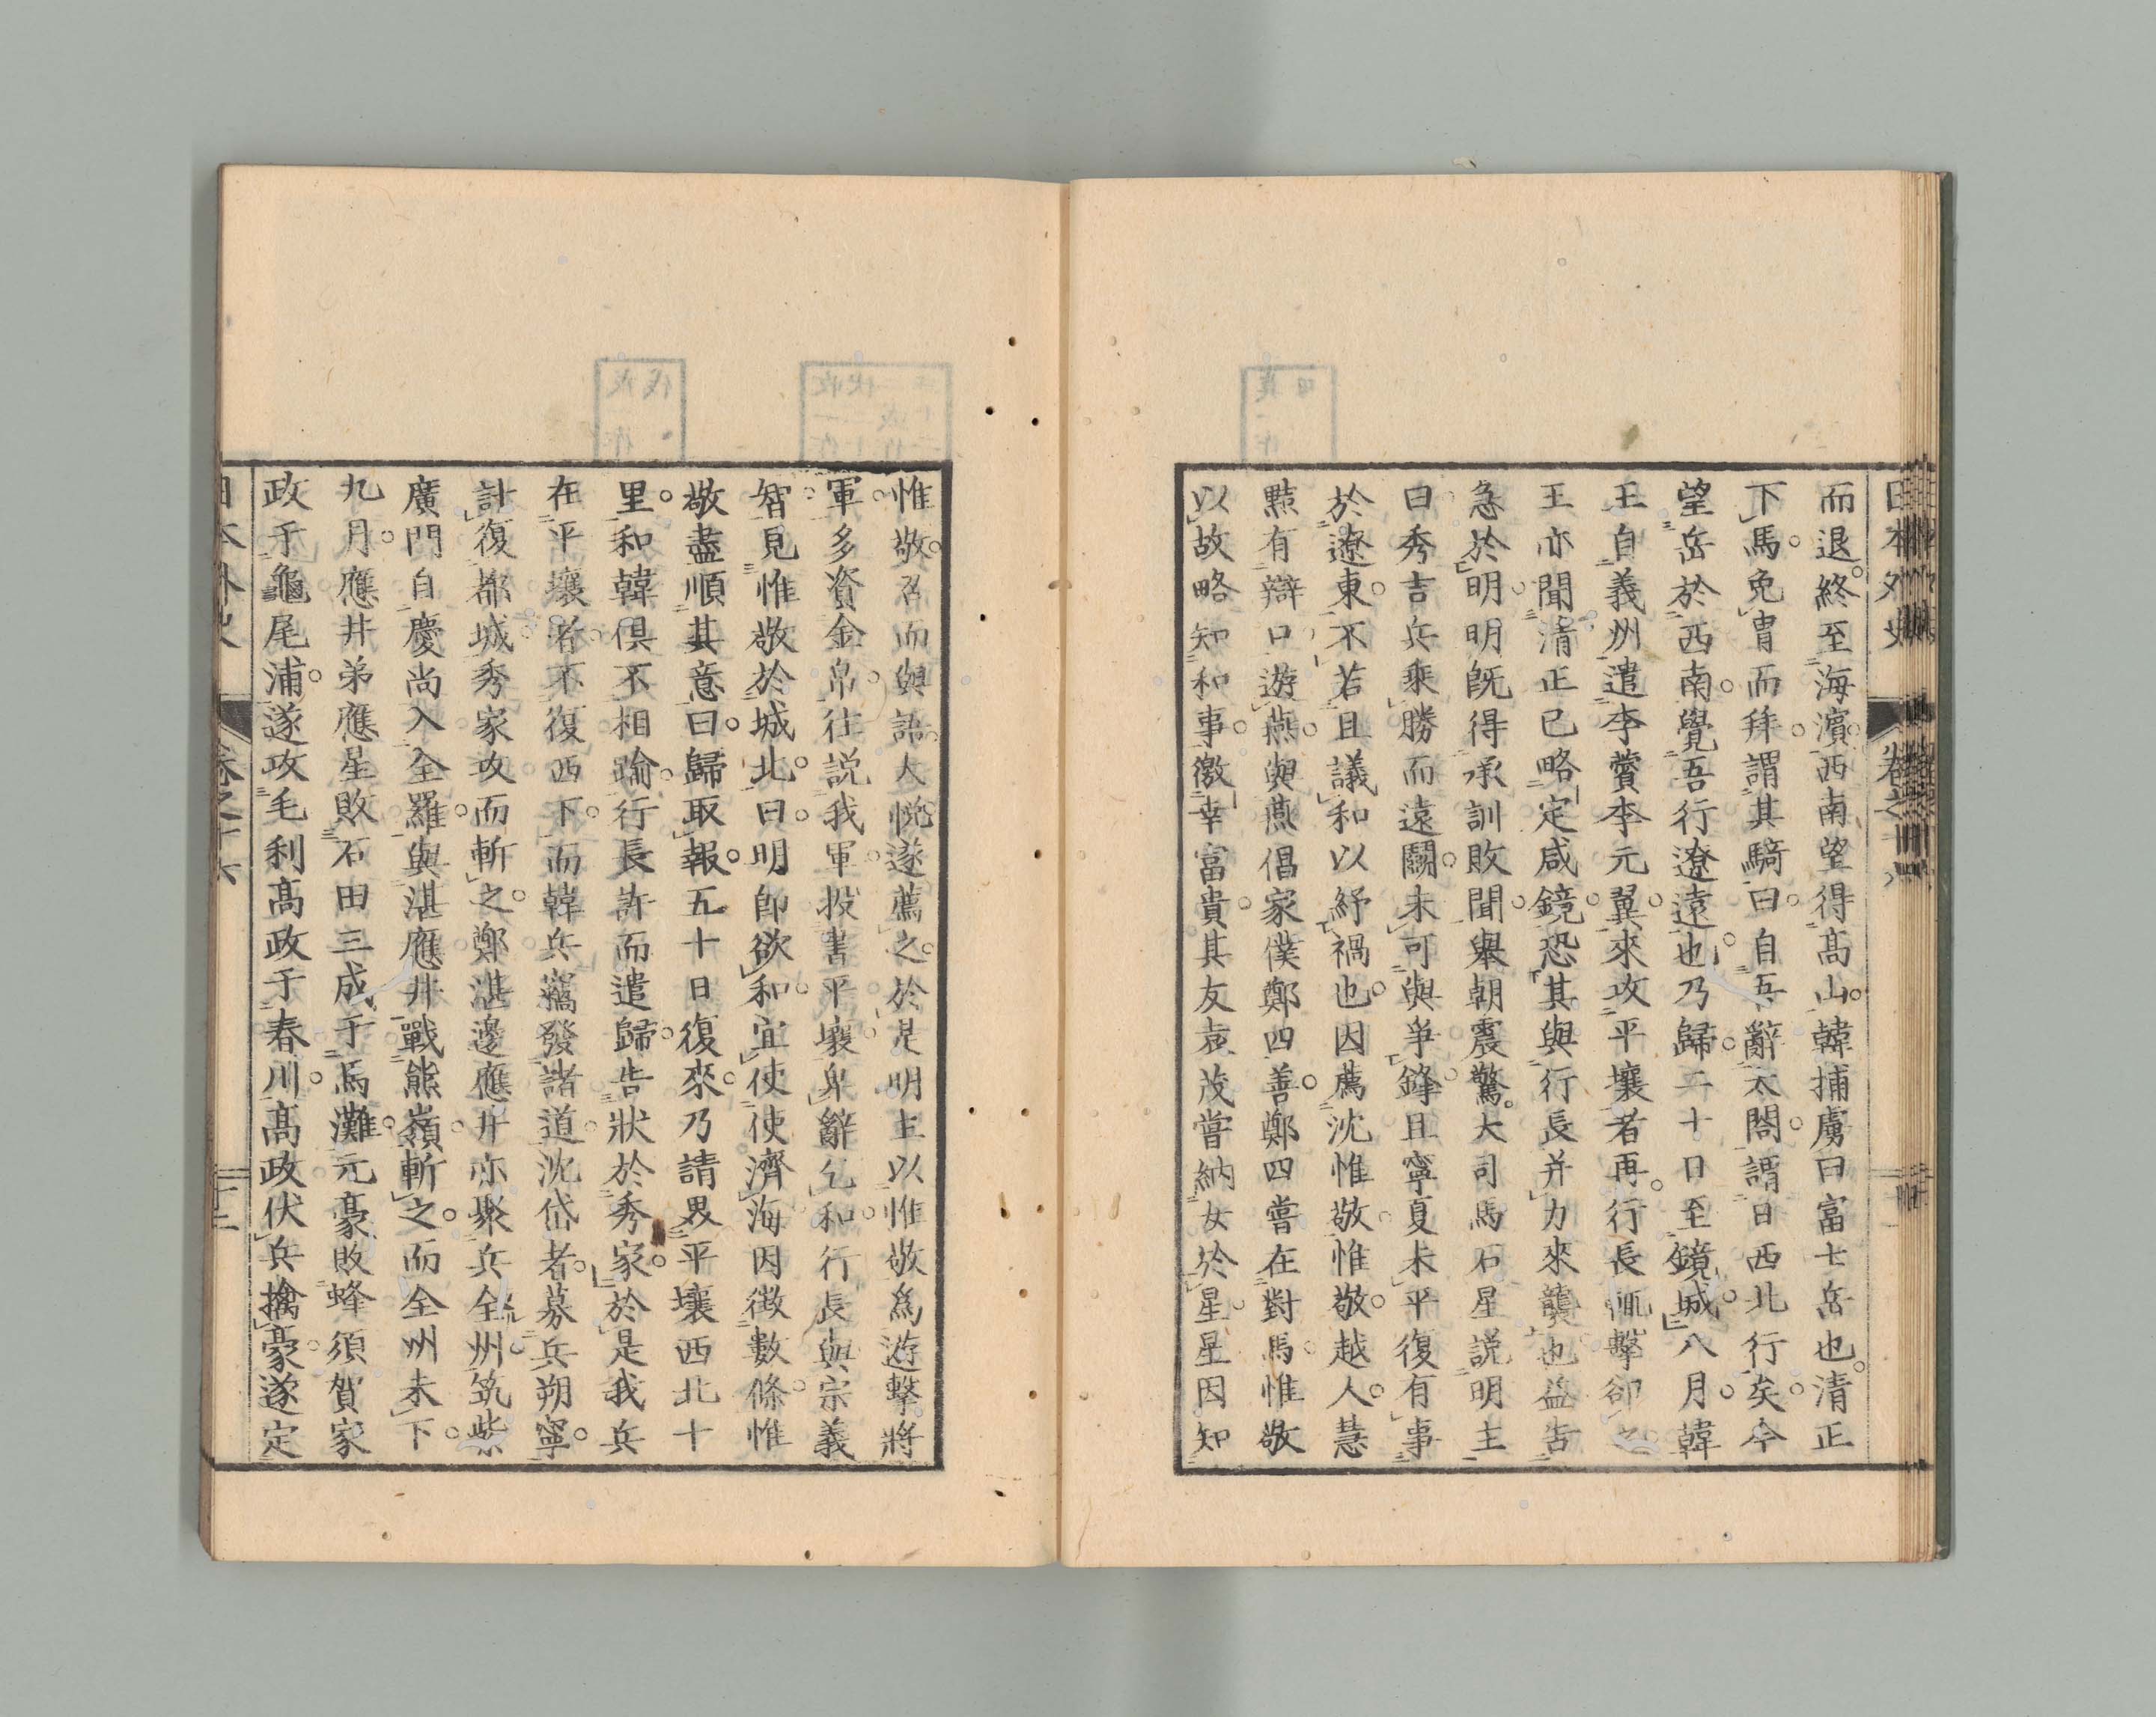 日本外史 卷之十六
而退。終至海濱。西南望得高山。韓捕虜曰富士岳也。清正
下馬。免冑而拜。謂其騎曰。自吾辭太閤。謂日西北行矣。今
望岳於西南。覺吾行遼遠也。乃歸。二十日至鏡城。八月。韓
王自義州遣李薲李元翼。來攻平壤者再。行長輒擊卻之。
王亦聞清正已略定咸鏡。恐其與行長并力來襲也。益告
急於明。明既得承訓敗聞。舉朝震驚。大司馬石星説明主
曰。秀吉兵乘勝而遠鬭。未可與爭鋒。且寧夏未平。復有事
於遼東。不若且議和以紓禍也。因薦沈惟敬。惟敬。越人。慧
黠有辯口。遊燕。與燕倡家僕鄭四善。鄭四嘗在對馬。惟敬
以故略知和事。徼幸富貴。其友袁茂嘗納女於星。星因知
惟敬。召而與語。大悦。遂薦之。於是明主以惟敬爲遊擊將
軍。多資金帛。往説我軍。投書平壤。卑辭乞和。行長與宗義
智見惟敬於城北。曰。明卽欲和。宜使使濟海。因徴數條。惟
敬盡順其意曰。歸取報。五十日復來。乃請畀平壤西北十
里。和韓倶不相踰。行長許而遣歸。告狀於秀家。於是我兵
在平壤者。不復西下。而韓兵竊發諸道。沈岱者。募兵朔寧。
計復都城。秀家攻而斬之。鄭湛邊應井亦聚兵全州。筑紫
廣門自慶尚入全羅。與湛應井戰熊嶺。斬之。而全州未下。
九月。應井弟應星敗石田三成于馬灘。元豪敗蜂須賀家
政于龜尾浦。遂攻毛利高政于春川。高政伏兵擒豪。遂定
日本外史 卷之十六 十二